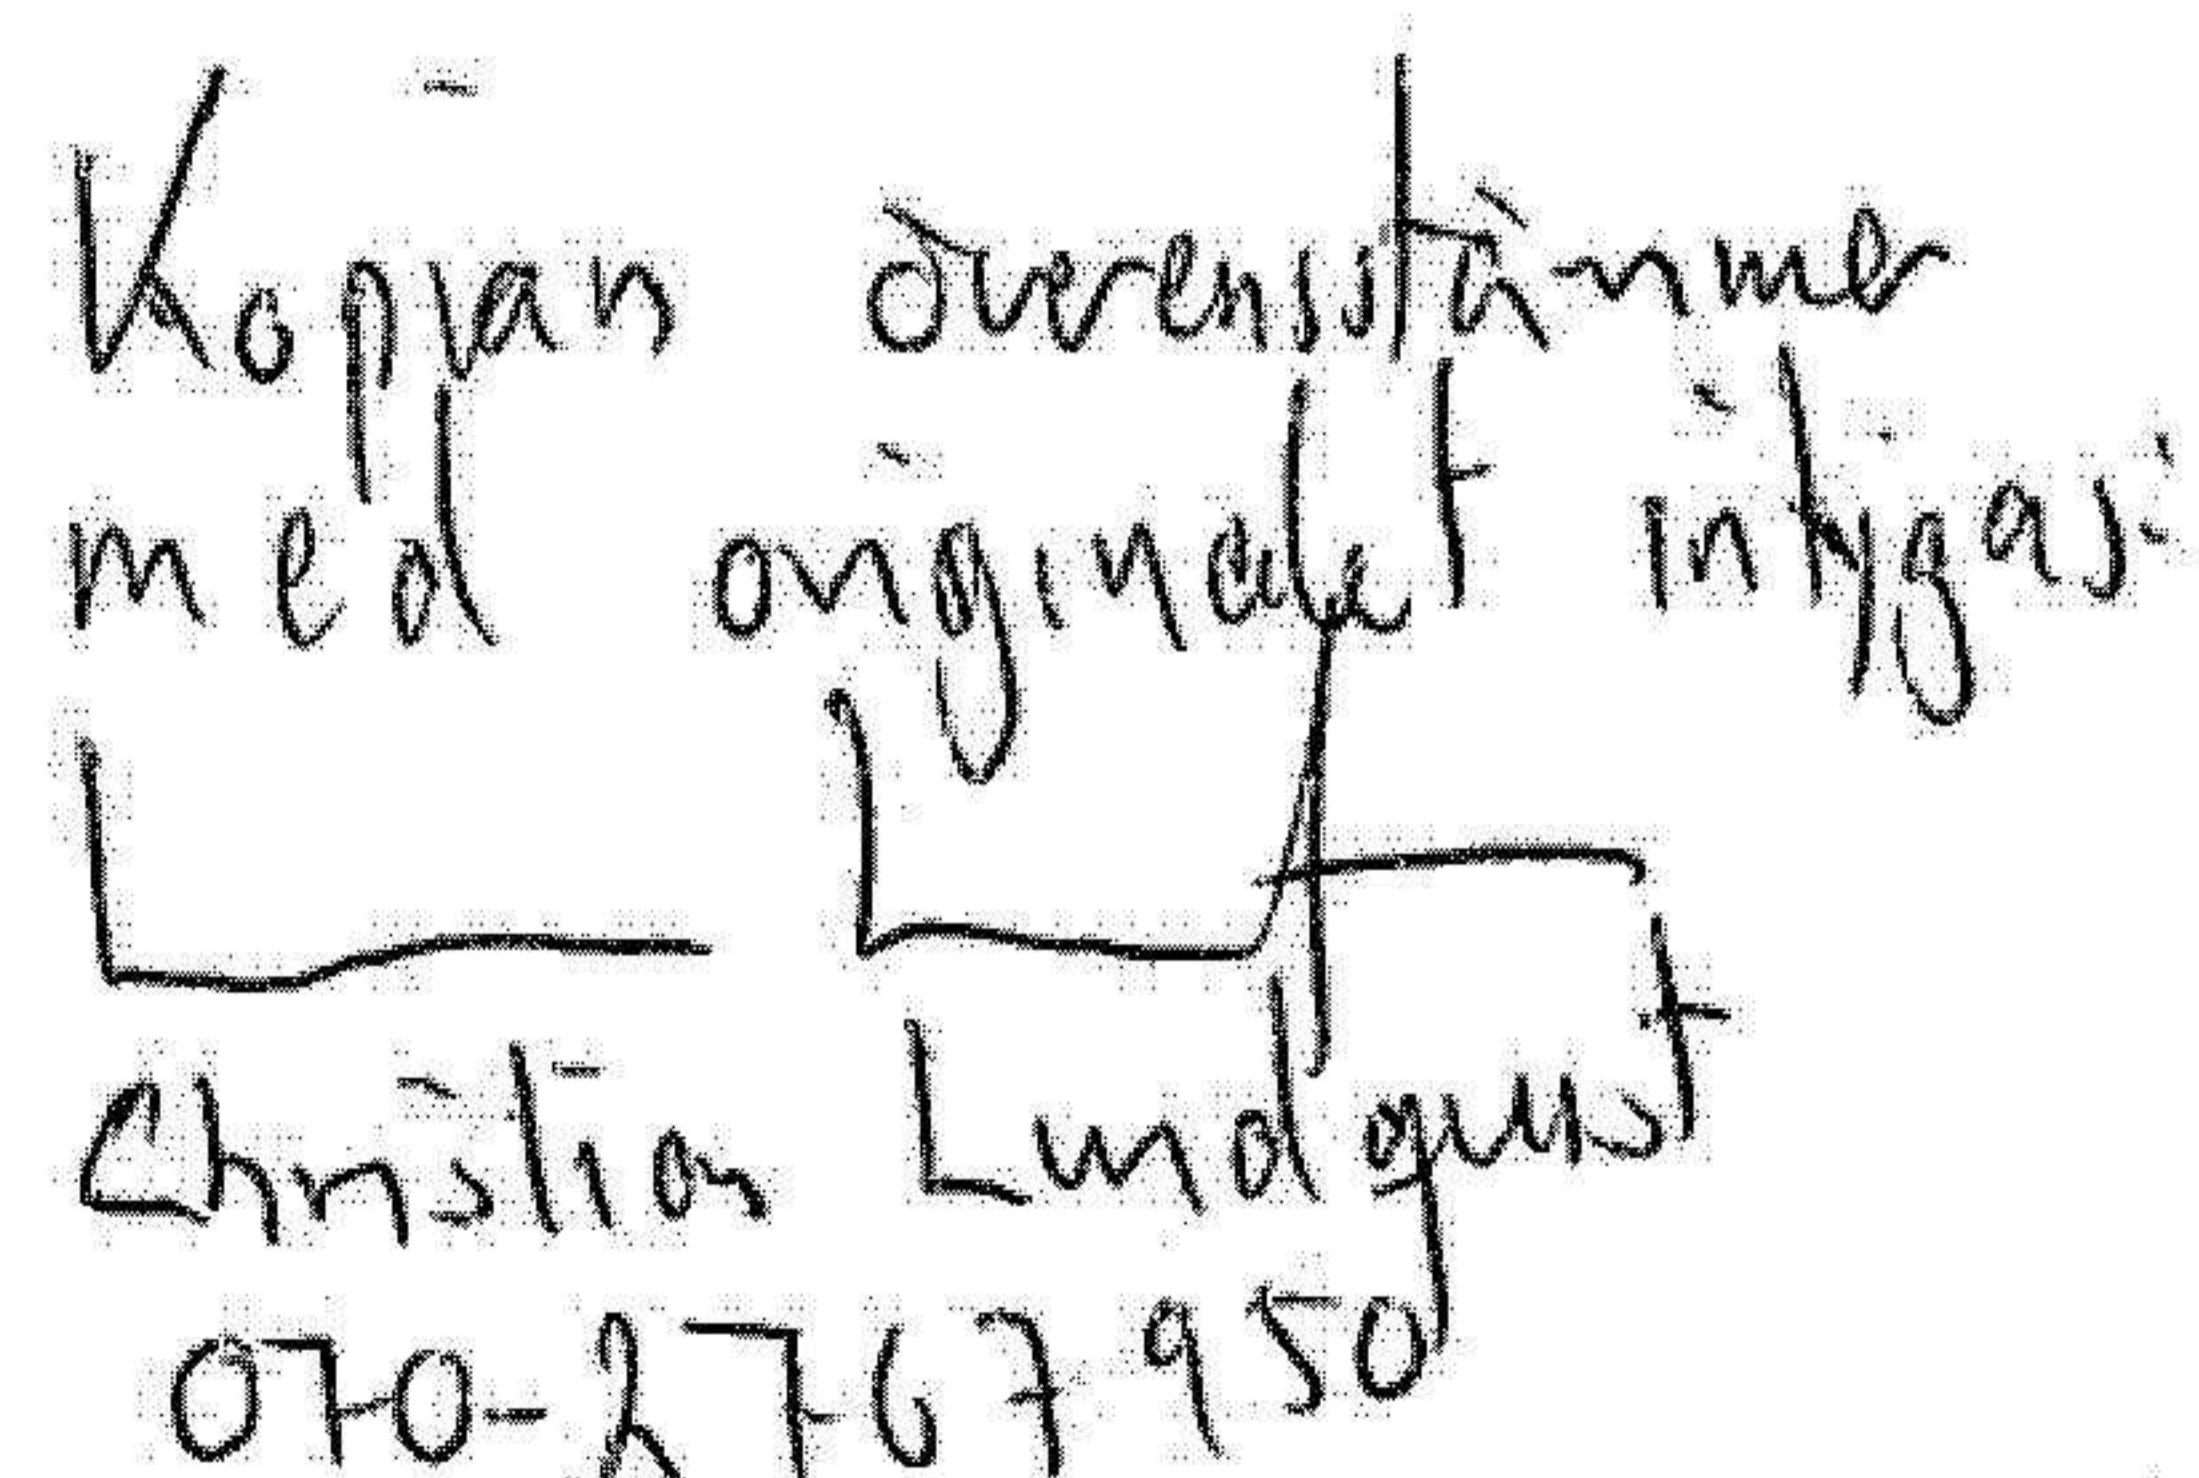 Kopian överenstämmer
med originalet intygas:
Christian Lundquist
070-2767950